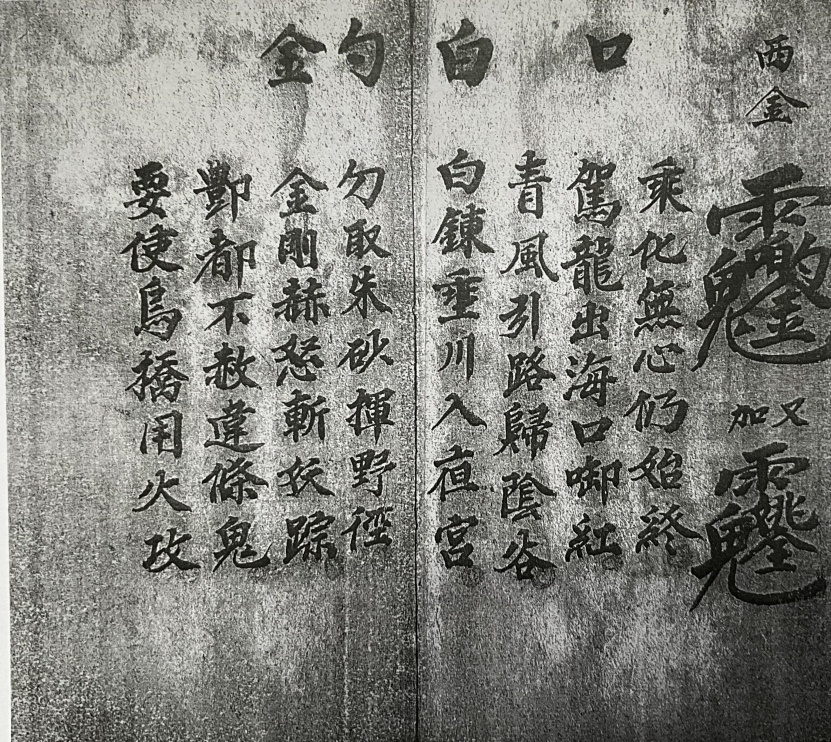 両金
又加
口
白
勺
金
乘化無心仍始終
駕龍出海口啣紅
青風引路歸陰谷
白鍊垂川入亱宮
勿取朱砂揮野徑
金剛赫怒斬妖踪
酆都不赦違條鬼
要使烏橋用火攻